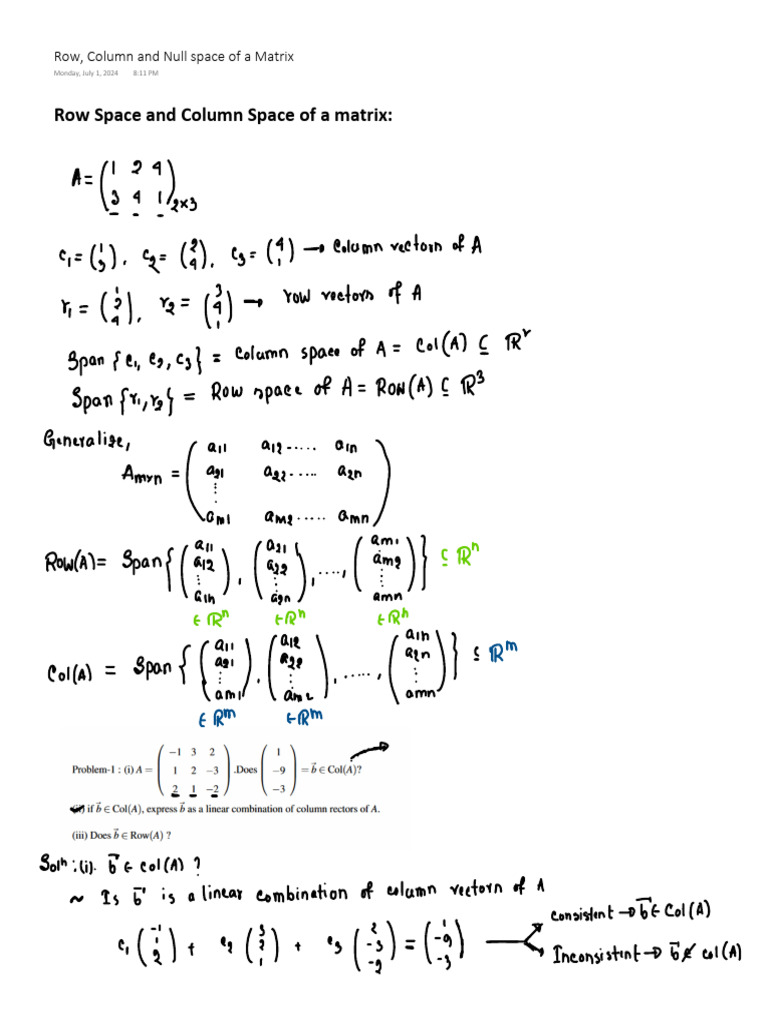 Row, Column and Null space of a Matrix
Monday, July 1, 2024 8:11 PM
Row Space and Column Space of a matrix:
A = ( 1 2 4
3 4 1 )2×3
c1 = (1 3), c2 = (2 4), c3 = (4 1) → Column vectors of A
r1 = (1 2 4), r2 = (3 4 1) → row vectors of A
Span {c1, c2, c3} = Column space of A = Col(A) ⊆ ℝ^r
Span {r1, r2} = Row space of A = Row(A) ⊆ ℝ^3
Generalize,
Amxn = ( a11 a12 ..... a1n
a21 a22 ..... a2n
⋮
am1 am2 ..... amn )
Row(A) = Span { (a11 a12 ⋮ a1n), (a21 a22 ⋮ a2n), ...., (am1 am2 ⋮ amn) } ⊆ ℝ^n
∈ ℝ^n ∈ ℝ^n ∈ ℝ^n
Col(A) = Span { (a11 a21 ⋮ am1), (a12 a22 ⋮ am2), ....., (a1n a2n ⋮ amn) } ⊆ ℝ^m
∈ ℝ^m ∈ ℝ^m
Problem-1 : (i) A = ( −1 3 2
1 2 −3
2 1 −2 ) .Does ( 1 −9 −3 ) = b⃗ ∈ Col(A)?
(ii) if b⃗ ∈ Col(A), express b⃗ as a linear combination of column rectors of A.
(iii) Does b⃗ ∈ Row(A) ?
Soln : (i). b⃗ ∈ col(A) ?
~ Is b⃗ is a linear combination of column vectors of A
c1 (-1 1 2) + c2 (3 2 1) + c3 (2 -3 -2) = (1 -9 -3)
Consistent → b⃗ ∈ Col(A)
Inconsistent → b⃗ ∉ col(A)